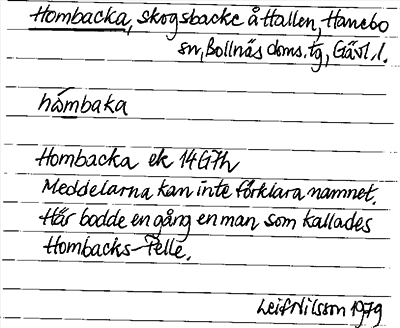 Hombacka, skogsbacke å Hallen, Hanebo
sn, Bollnäs doms. tg, Gävl. l.
hómbaka
Hombacka ek 14G7h
Meddelarna kan inte förklara namnet.
Här bodde en gång en man som kallades
Hombacks-Pelle.
Leif Nilsson 1979